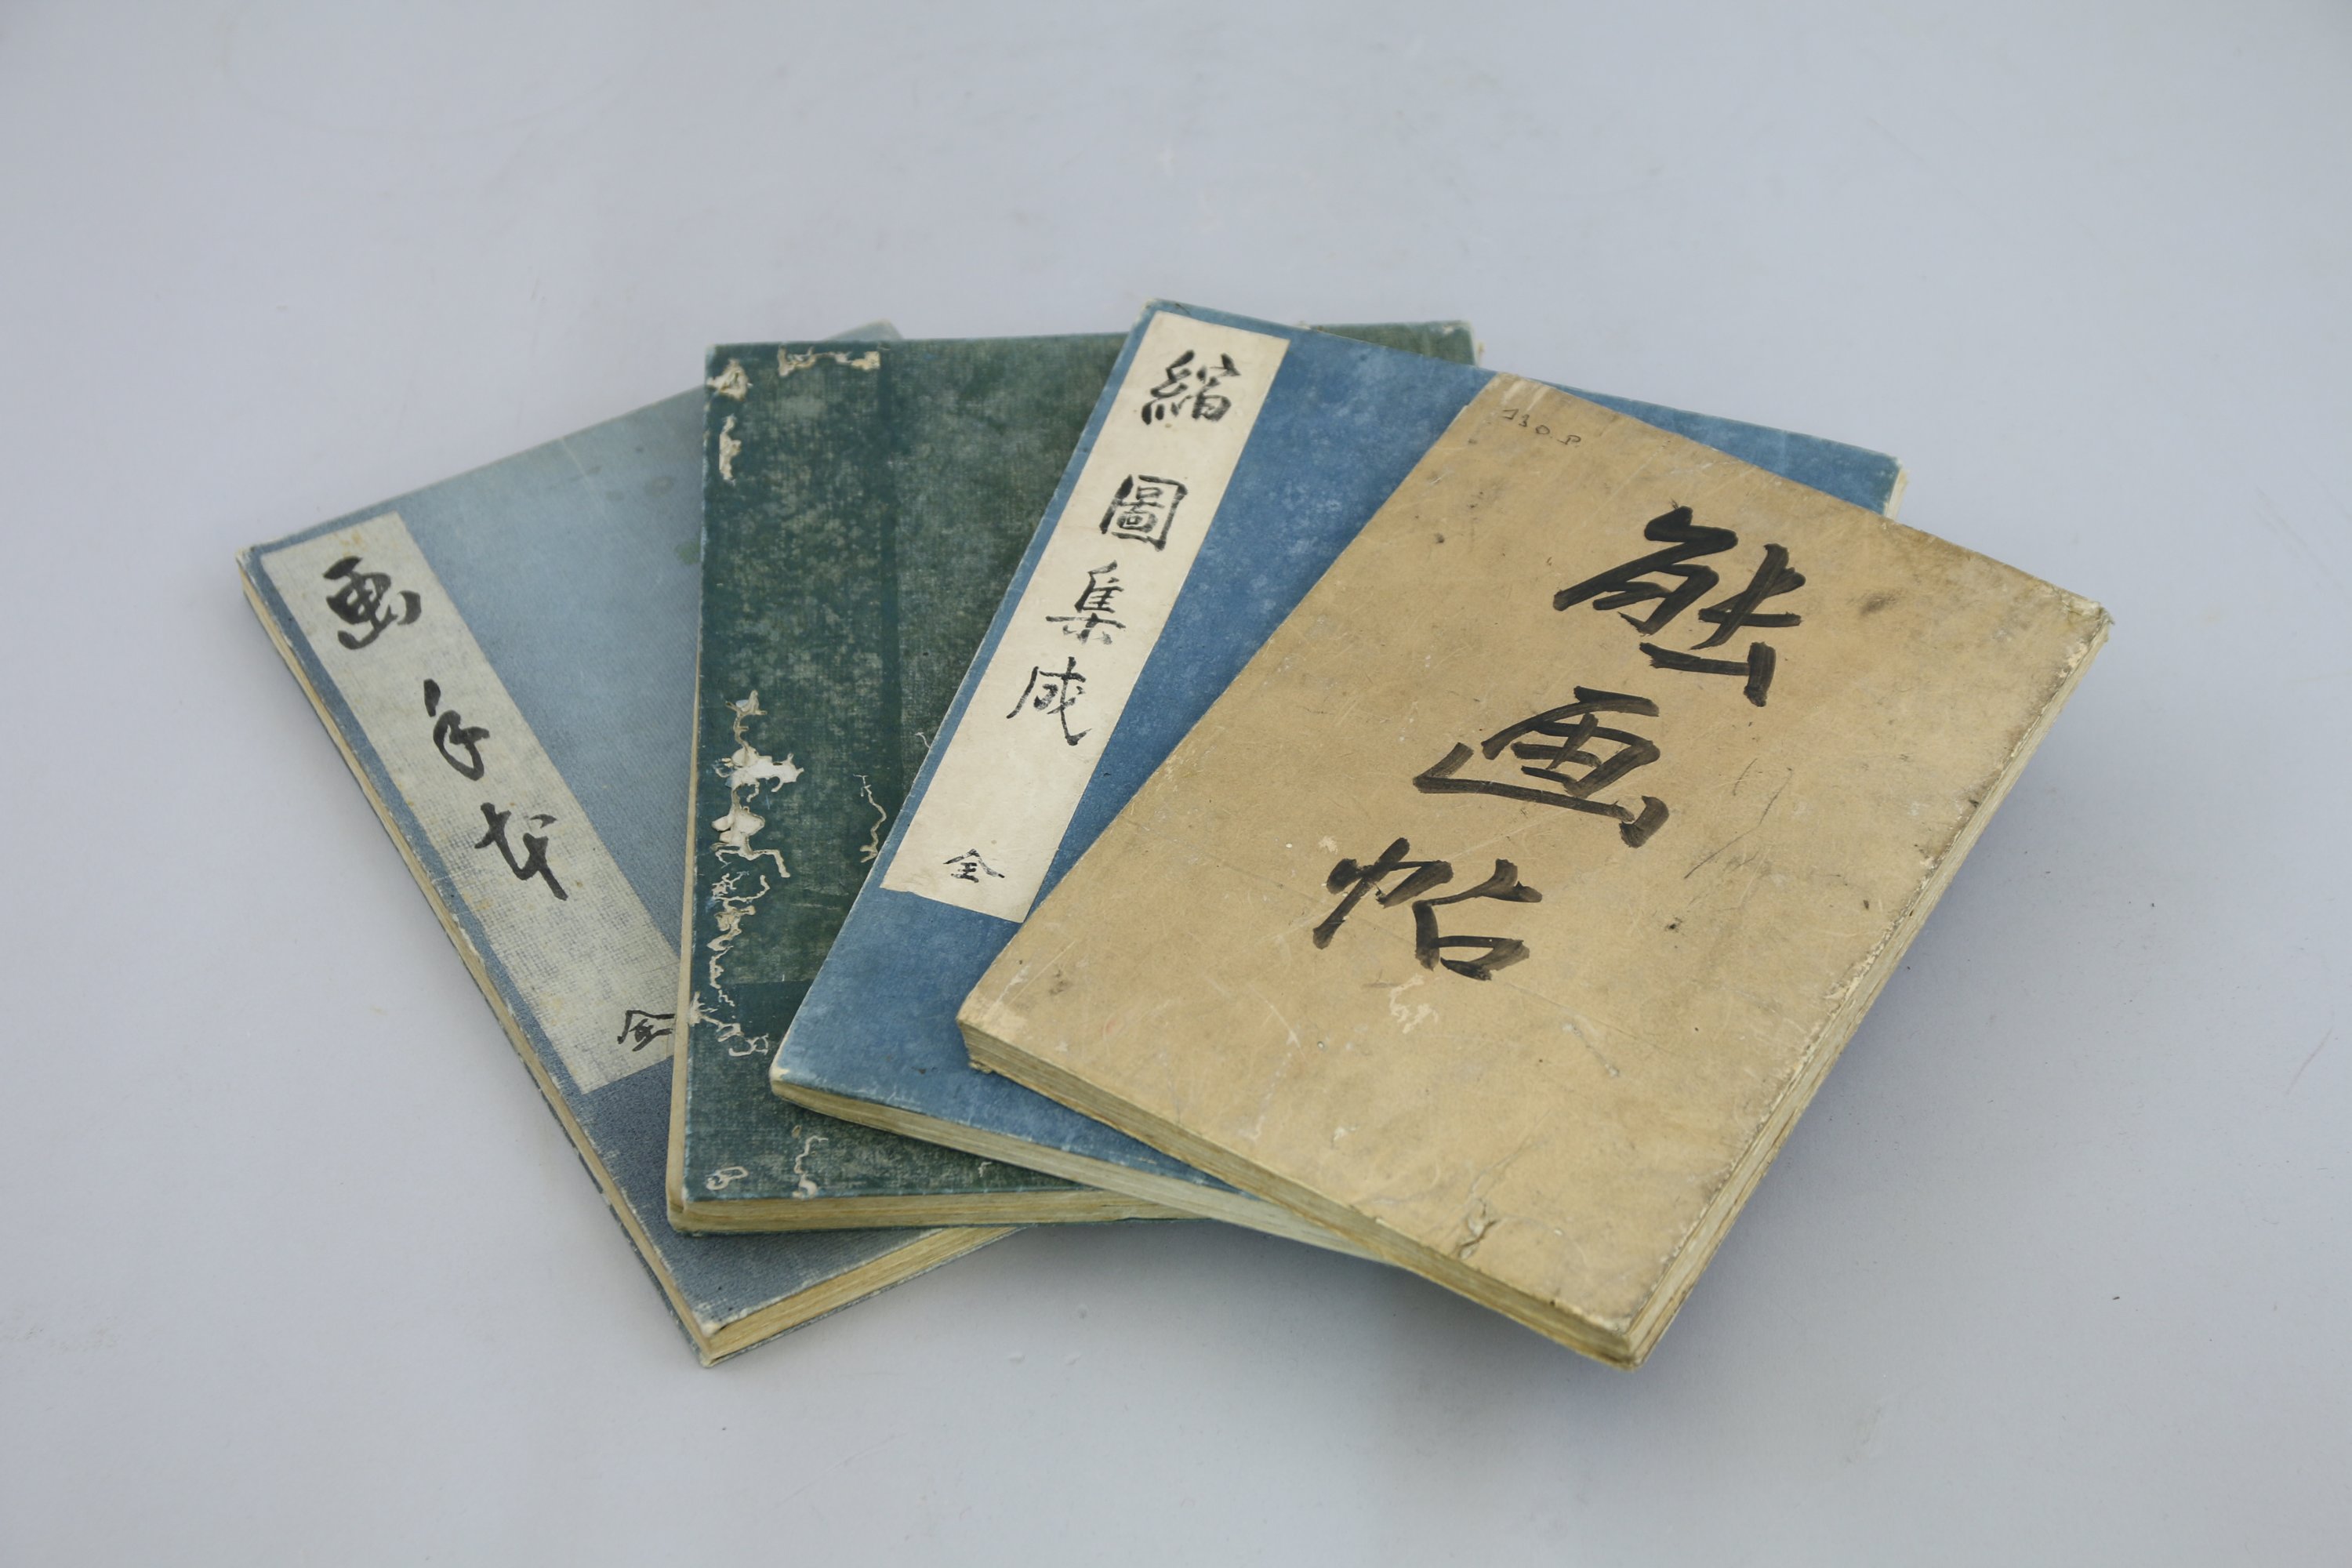 画手本
全
縮圖集成
全
130 P
能画帖